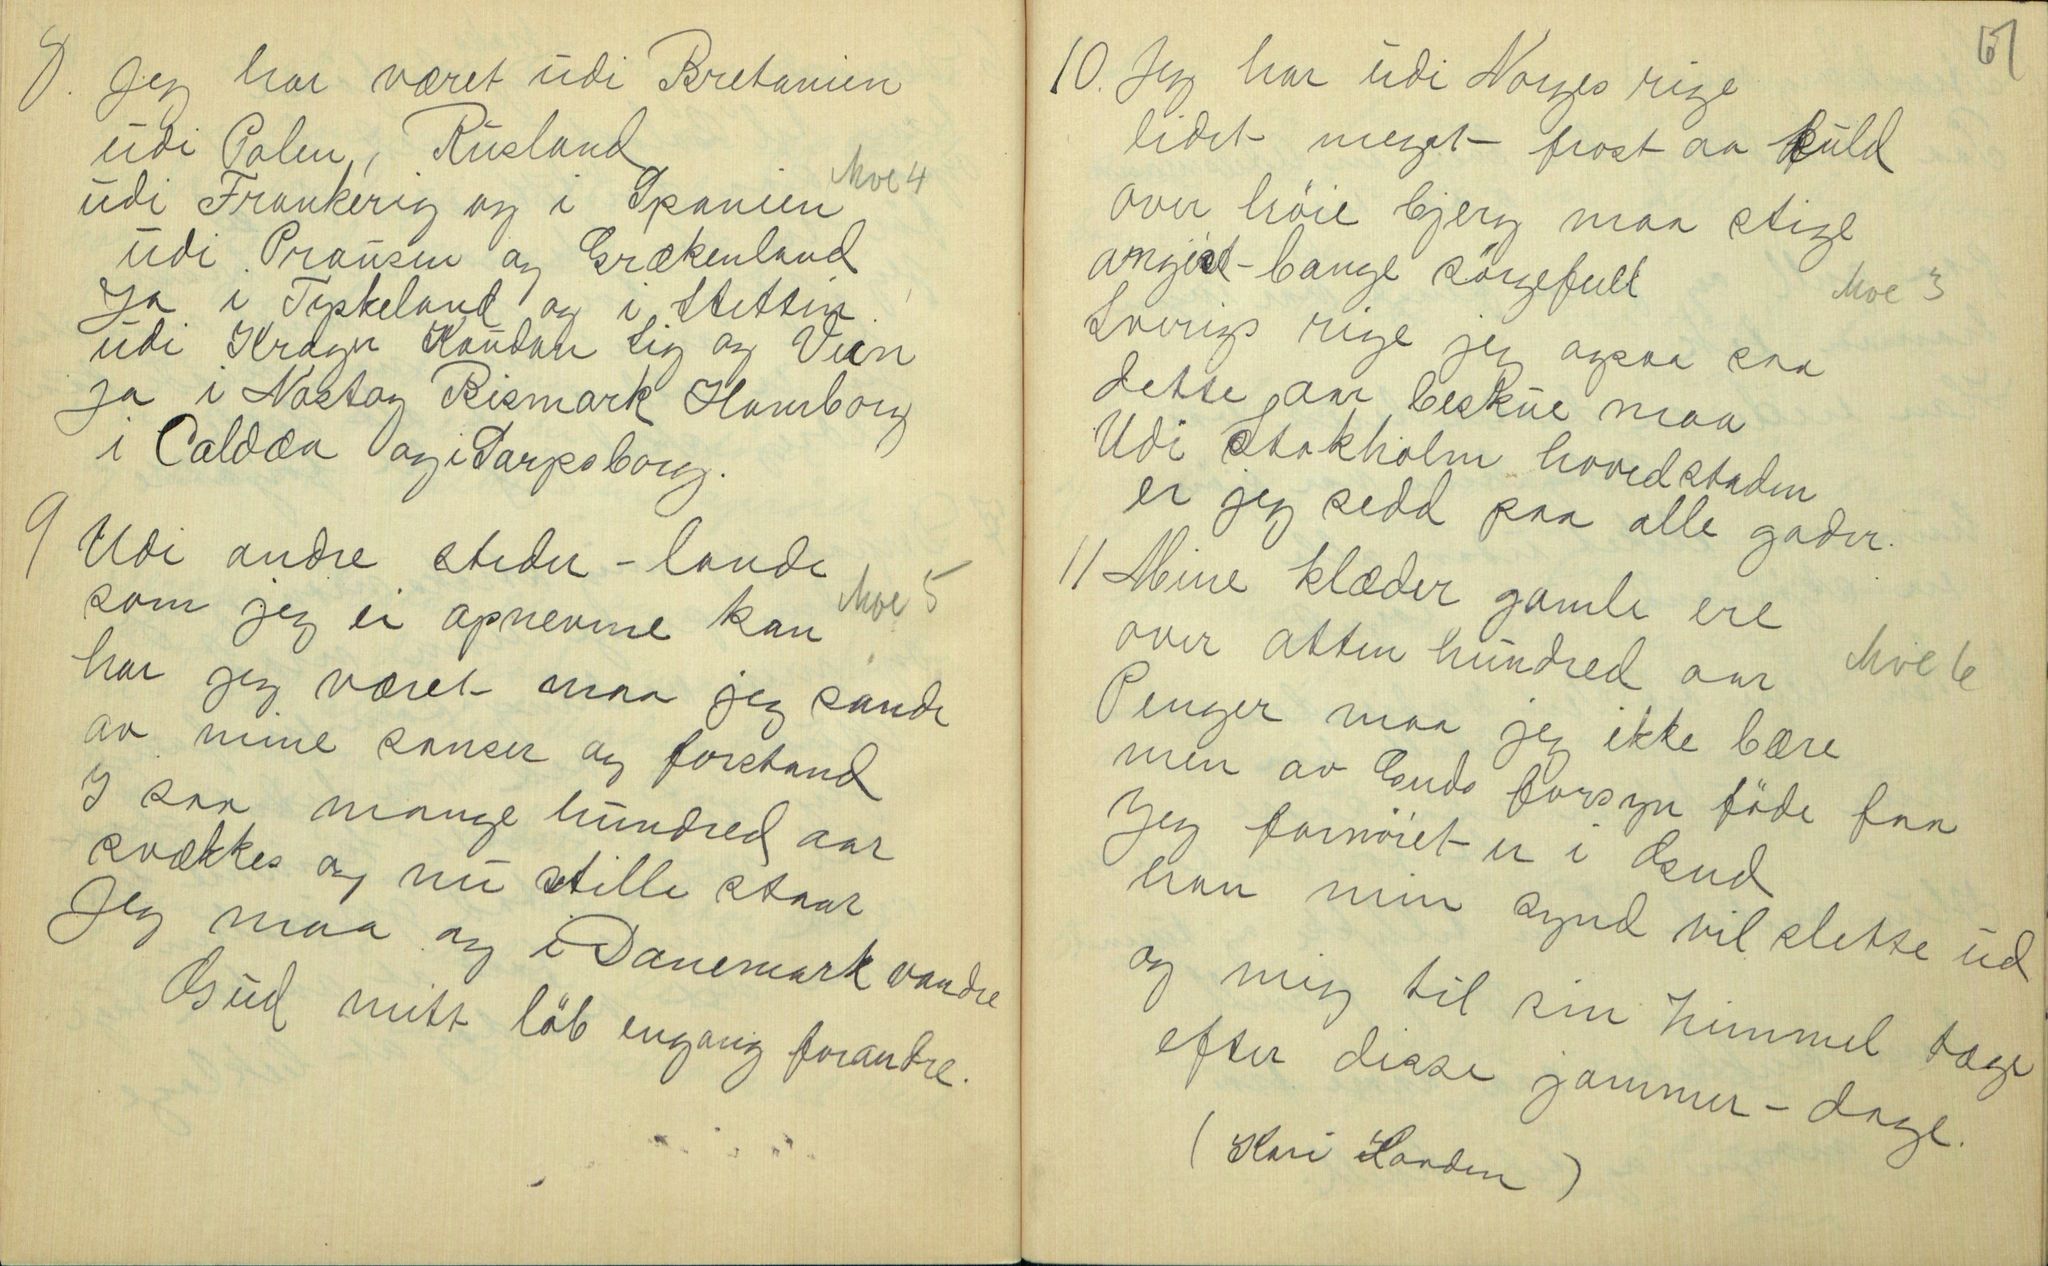 8. Jeg har været udi Bretanien
udi Polen, Rusland
udi Frankerig og i Spanien
Moe 4
udi Prausen og Grækenland
Ja i Tyskeland og i Stettin
udi Krager Kaudan Lig og Vien
ja i Nostog Bismark Hamborg
i Caldæa og i Sarpsborg.
9 Udi andre steder - lande
som jeg ei opnevne kan
Moe 5
har jeg været maa jeg sande
av mine sanser og forstand
I saa mange hundred aar
svækkes og nu stille staar
Jeg maa og i Danemark vandre
Gud mitt löb engang forandre.
67
10. Jeg har udi Norges rige
lidet meget frost aa kuld
over höie bjerg maa stige
angist - bange sörgefull
Moe 3
Sverigs rige jeg ogsaa saa
dette aar beskue maa
Udi Stokholm hovedstaden
er jeg sedd paa alle gader.
11 Mine klæder gamle ere
over atten hundred aar
Moe 6
Penger maa jeg ikke bære
men av Guds forsyn föde faa
Jeg fornöiet er i Gud
han min synd vil slette ud
og mig til sin himmel tage
efter disse jammer - dage.
(Kari Haanden)